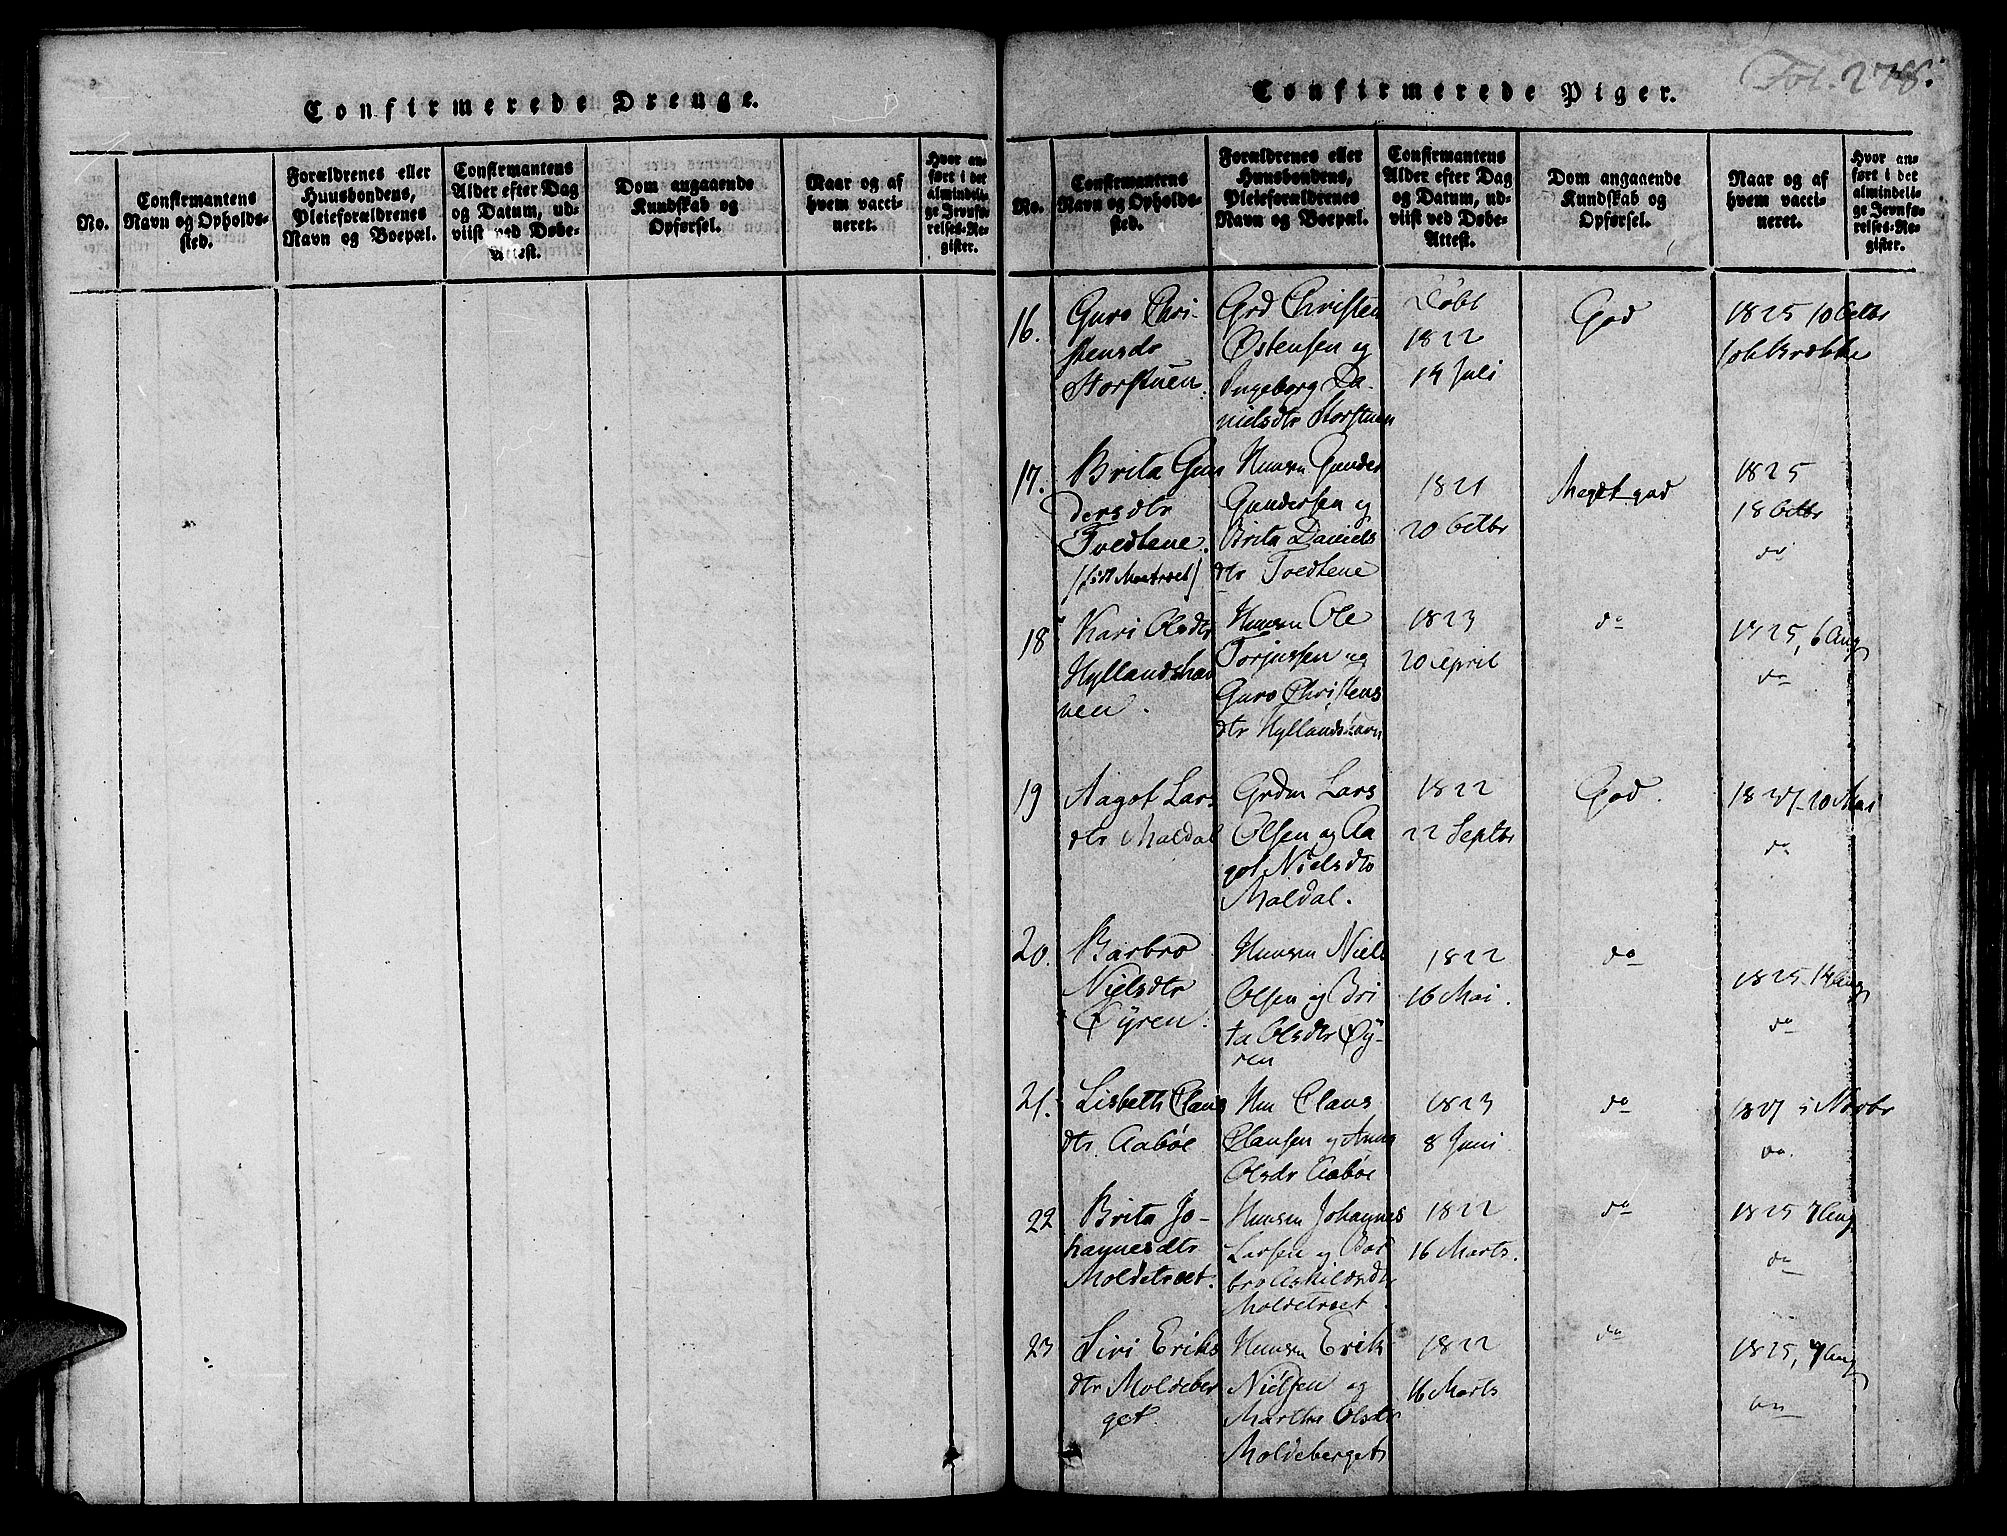 Confirmerede Drenge.
No.
Confirmantens
Navn og Opholds-
sted.
Forældrenes eller
Huusbondens,
Pleieforældrenes
Navn og Boepæl.
Confirmantens
Alder efter Dag
og Datum, ud-
viist ved Døbe-
Attest.
Dom angaaende
Kundskab og
Opførsel.
Naar og af
hvem vacci-
neret.
Hvor an-
ført i det
almindeli-
ge Jevnfø-
relses-Re-
gister.
Fol. 278.
Confirmerede Piger.
No.
Confirmantens
Navn og Opholds-
sted.
Forældrenes eller
Huusbondens,
Pleieforældrenes
Navn og Boepæl.
Confirmantens
Alder efter Dag
og Datum, ud-
viist ved Døbe-
Attest.
Dom angaaende
Kundskab og
Opførsel.
Naar og af
hvem vacci-
neret.
Hvor an-
ført i det
almindeli-
ge Jevnfø-
relses-Re-
gister.
16.
Guro Chri-
stensdr
Storstuen.
Grd Christen
Østensen og
Ingeborg Da-
nielsdtr Storstuen
Døbt
1822
14 Juli
God
1825 10 Octbr
17.
Brita Gun
dersdtr
Tvedtene.
Huusm Gunder
Gundersen og
Brita Daniels
dtr Tvedtene
1821
20 Octbr
Meget god
1825
18 Octbr
do
18
Kari Olsdtr
Hyllandshav
nen.
Huusm Ole
Torjussen og
Guro Christens
dtr Hyllandshavn
1823
20 April
do
1825, 6 Aug
do
19
Aagot Lars
dtr Maldal
Grdm Lars
Olsen og Aa
got Nielsdtr
Maldal.
1822
22 Septbr
God.
1837 20 Mai
do
20.
Barbro
Nielsdtr
Øyren.
Huusm Niels
Olsen og Bri
ta Olsdtr Øy-
ren
1822
16 Mai.
do
1825 14 Aug
do
21.
Lisbeth Claus
dtr. Aabøe
Hm Claus
Clausen og Anna
Olsdr Aabøe
1823
8 Juni
do
1837 5 Novbr
do.
22
Brita Jo-
hannesdtr
Moldetræet.
Huusm Johannes
Larsen og Bar
bro Askildsdtr
Moldetræet.
1822
16 Marts.
do
1825 7 Aug
do
23
Siri Eriks
dtr Moldeber
get.
Huusm Erik
Nielsen og
Martha Olsdtr
Moldeberget
1822
16 Marts
do
1825, 7 Aug
do